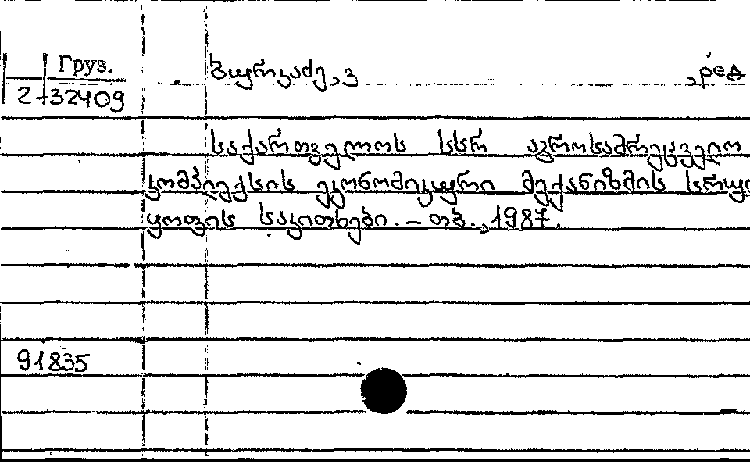 Груз.
2-32409
ბურკაძე, ვ , ред
საქართველოს სსრ აგროსამრეწველო
კომპლექსის ეკონომიკური მექანიზმის სრულ
ყოფის საკითხები. – თბ., 1987.
91835